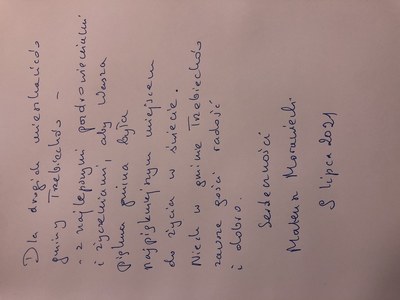 Dla drogich mieszkańców
gminy Trzebiechów -
- z najlepszymi pozdrowieniami
i życzeniami, aby Wasza
piękna gmina była
najpiękniejszym miejscem
do życia w świecie.
Niech w gminie Trzebiechów
zawsze gości radość
i dobro.
Serdeczności
Mateusz Morawiecki
8 lipca 2021